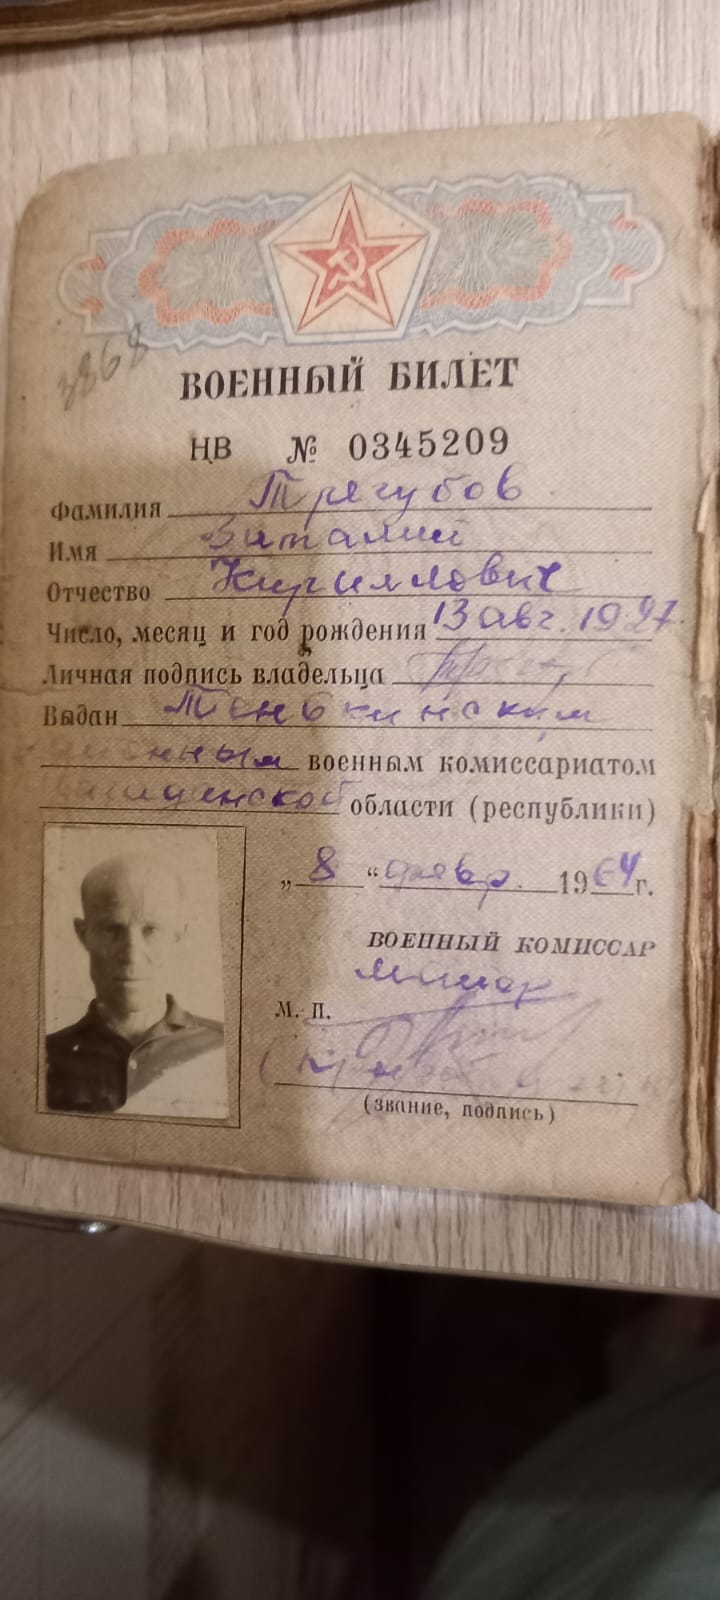 3868
ВОЕННЫЙ БИЛЕТ
НВ № 0345209
Фамилия Трегубов
Имя Виталий
Отчество Кириллович
Число, месяц и год рождения 13 авг. 1927
Личная подпись владельца
Выдан Тенькинским
военным комиссариатом
области (республики)
„ 8 “ 1964 г.
ВОЕННЫЙ КОМИССАР
М. П.
(звание, подпись)